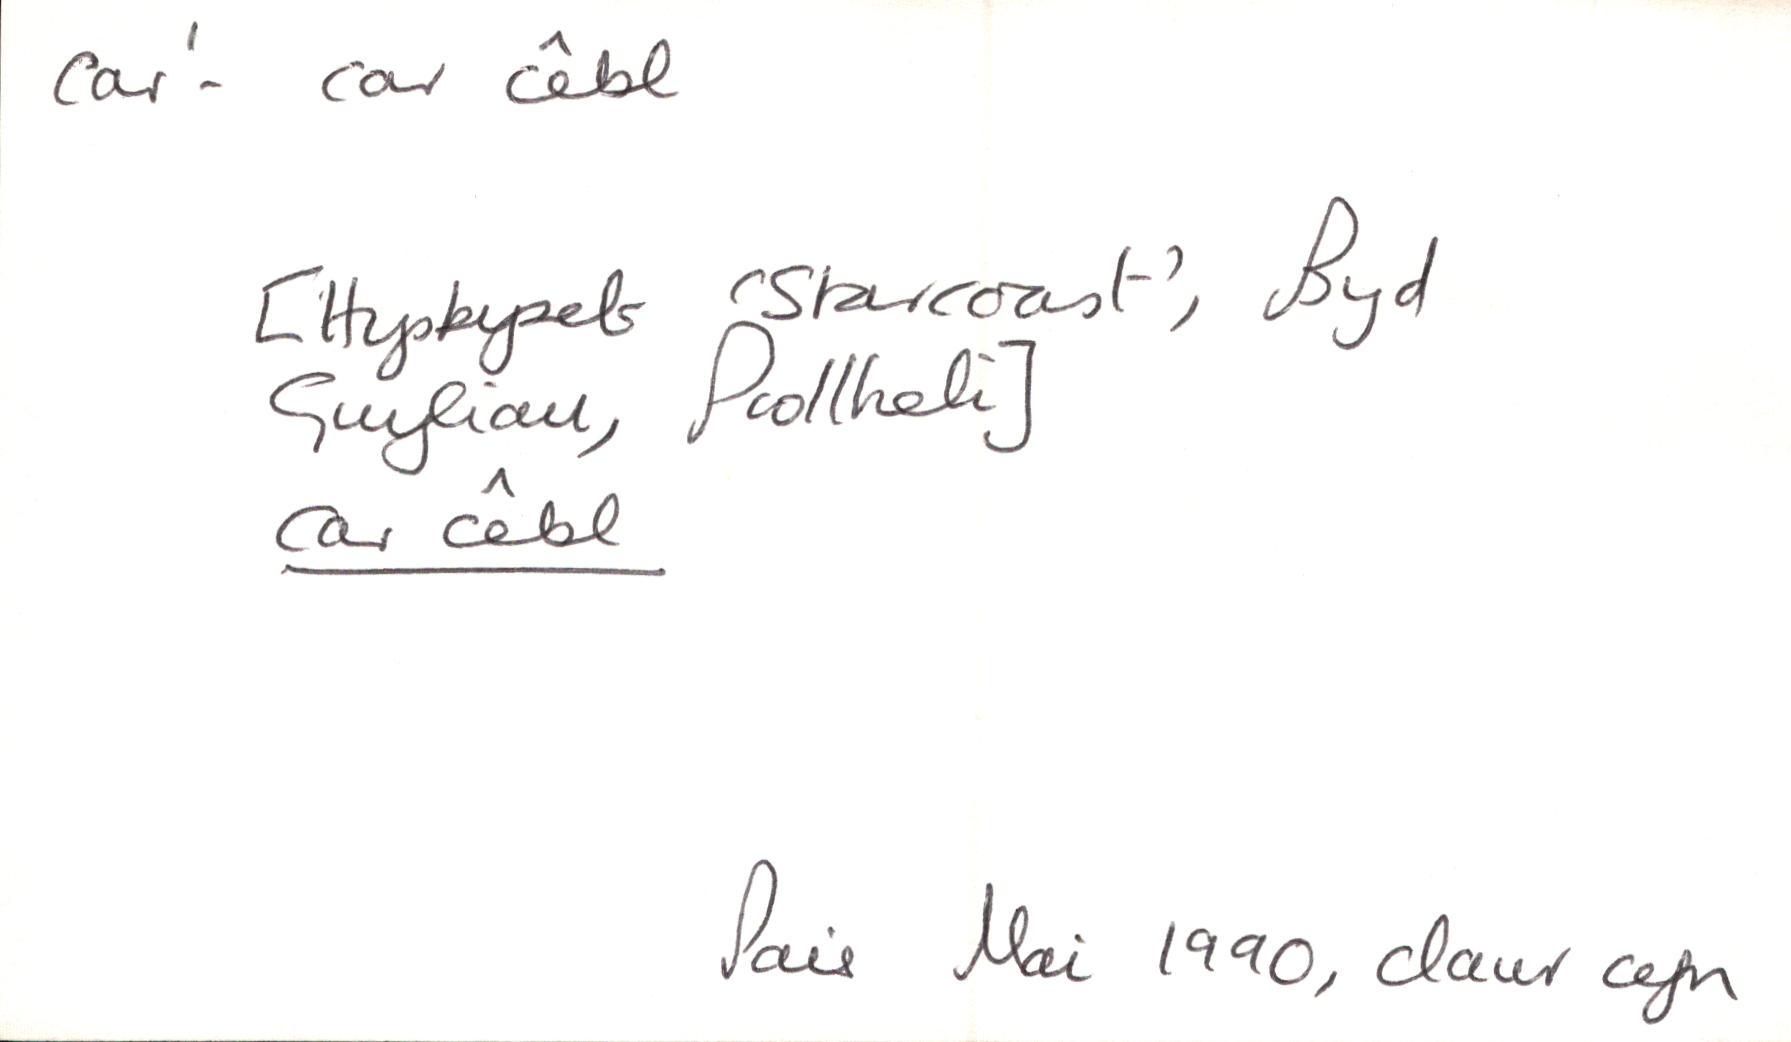 car¹- car cêbl
[Hysbyseb 'Starcoast', Byd
Gwyliau, Pwllheli]
car cêbl
Pais Mai 1990, clawr cefn